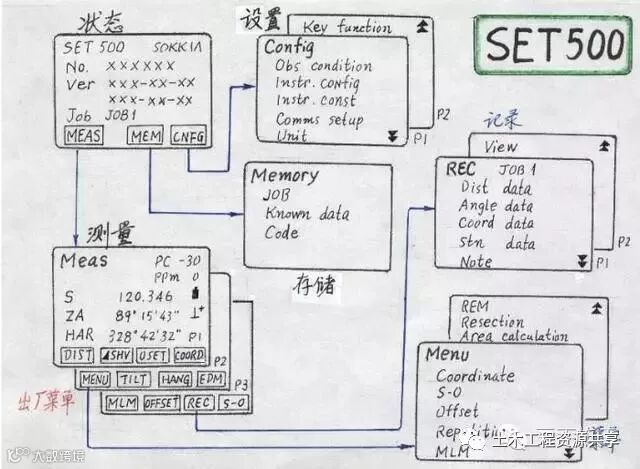 状态
SET 500 SOKKIA
No. ××××××
Ver ×××-××-××
×××-××-××
Job JOB1
MEAS MEM CNFG
设置
Key function
P2
Config
Obs condition
Instr. config
Instr. const
Comms setup
Unit
P1
SET500
Memory
JOB
Known data
Code
存储
记录
View
P2
REC JOB1
Dist data
Angle data
Coord data
Stn data
Note
P1
测量
Meas PC -30
PPm 0
S 120.346
ZA 89°15'43"
HAR 328°42'32" P1
DIST ◢SHV 0SET COORD
P2
MENU TILT HANG EDM
P3
MLM OFFSET REC S-O
出厂菜单
REM
Resection
Area calculation
Menu
Coordinate
S-O
Offset
MLM
土木工程资源共享
大数跨境